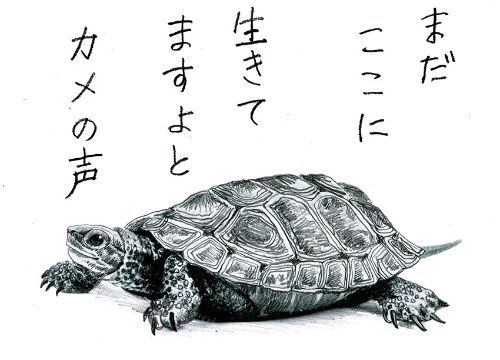 まだ
ここに
生きて
ますよと
カメの声